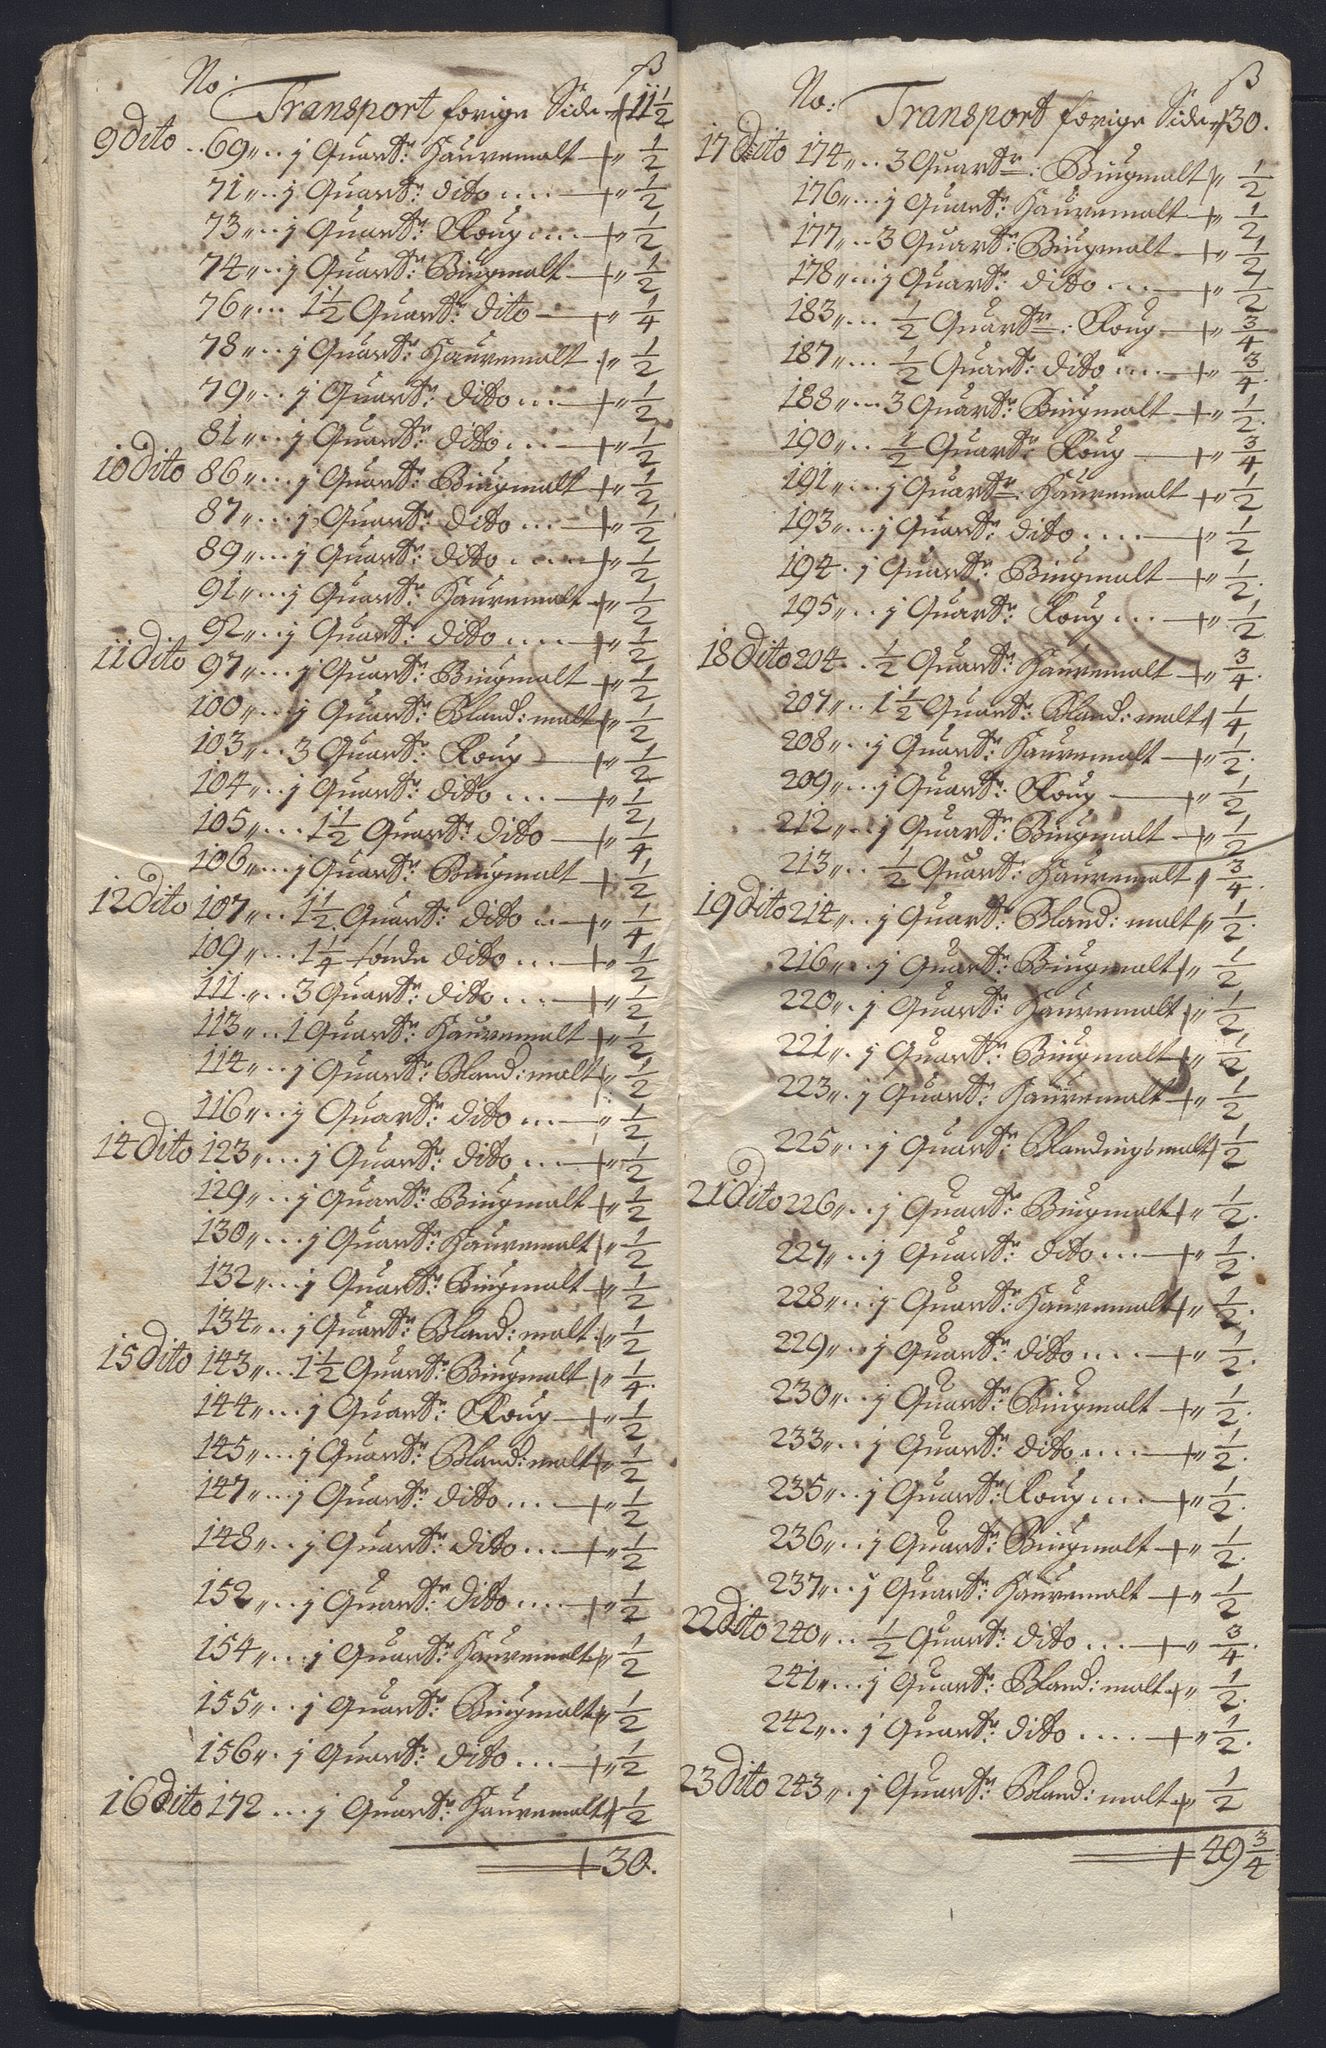 No: ß
Transport forige Side 11 1/2
9 Dito 69 j Quart: Hauremalt 1/2
71 j Quart: dito 1/2
73 j Quart: Roug 1/2
74 j Quart: Biugmalt 1/2
76 1 1/2 Quart: dito 1/4
78 j Quart: Hauremalt 1/2
79 j Quart: dito 1/2
81 j Quart: dito 1/2
10 Dito 86 j Quart: Biugmalt 1/2
87 j Quart: dito 1/2
89 j Quart: dito 1/2
91 j Quart: Hauremalt 1/2
92 j Quart: dito 1/2
11 Dito 97 j Quart: Biugmalt 1/2
100 j Quart: Bland: malt 1/2
103 3 Quart: Roug 1/2
104 j Quart: dito 1/2
105 1 1/2 Quart: dito 1/4
106 j Quart: Biugmalt 1/2
12 Dito 107 1 1/2 Quart: dito 1/4
109 1 1/4 tønde dito 1/2
111 3 Quart: dito 1/2
113 1 Quart: Hauremalt 1/2
114 j Quart: Bland: malt 1/2
116 j Quart: dito 1/2
14 Dito 123 j Quart: dito 1/2
129 j Quart: Biugmalt 1/2
130 j Quart: Hauremalt 1/2
132 j Quart: Biugmalt 1/2
134 j Quart: Bland: malt 1/2
15 Dito 143 1 1/2 Quart: Biugmalt 1/4
144 j Quart: Roug 1/2
145 j Quart: Bland: malt 1/2
147 j Quart: dito 1/2
148 j Quart: dito 1/2
152 j Quart: dito 1/2
154 j Quart: Hauremalt 1/2
155 j Quart: Biugmalt 1/2
156 j Quart: dito 1/2
16 Dito 172 j Quart: Hauremalt 1/2
30.
No: ß
Transport forige Side 30.
17 Dito 174 3 Quart: Biugmalt 1/2
176 j Quart: Hauremalt 1/2
177 3 Quart: Biugmalt 1/2
178 j Quart: dito 1/2
183 1/2 Quart: Roug 3/4
187 1/2 Quart: dito 3/4
188 3 Quart: Biugmalt 1/2
190 1/2 Quart: Roug 3/4
191 j Quart: Hauremalt 1/2
193 j Quart: dito 1/2
194 j Quart: Biugmalt 1/2
195 j Quart: Roug 1/2
18 Dito 204 1/2 Quart: Hauremalt 3/4
207 1 1/2 Quart: Bland: malt 1/4
208 j Quart: Hauremalt 1/2
209 j Quart: Roug 1/2
212 j Quart: Biugmalt 1/2
213 1/2 Quart: Hauremalt 3/4
19 Dito 214 j Quart: Bland: malt 1/2
216 j Quart: Biugmalt 1/2
220 j Quart: Hauremalt 1/2
221 j Quart: Biugmalt 1/2
223 j Quart: Hauremalt 1/2
225 j Quart: Blandingsmalt 1/2
21 Dito 226 j Quart: Biugmalt 1/2
227 j Quart: dito 1/2
228 j Quart: Hauremalt 1/2
229 j Quart: dito 1/2
230 j Quart: Biugmalt 1/2
233 j Quart: dito 1/2
235 j Quart: Roug 1/2
236 j Quart: Biugmalt 1/2
237 j Quart: Hauremalt 1/2
22 Dito 240 1/2 Quart: dito 3/4
241 j Quart: Bland: malt 1/2
242 j Quart: dito 1/2
23 Dito 243 j Quart: Bland: malt 1/2
49 3/4